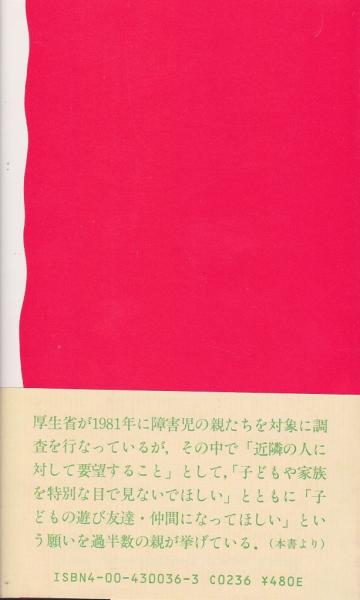 厚生省が1981年に障害児の親たちを対象に調
査を行なっているが，その中で「近隣の人に
対して要望すること」として，「子どもや家族
を特別な目で見ないでほしい」とともに「子
どもの遊び友達・仲間になってほしい」とい
う願いを過半数の親が挙げている．（本書より）
ISBN4-00-430036-3 C0236 ¥480E